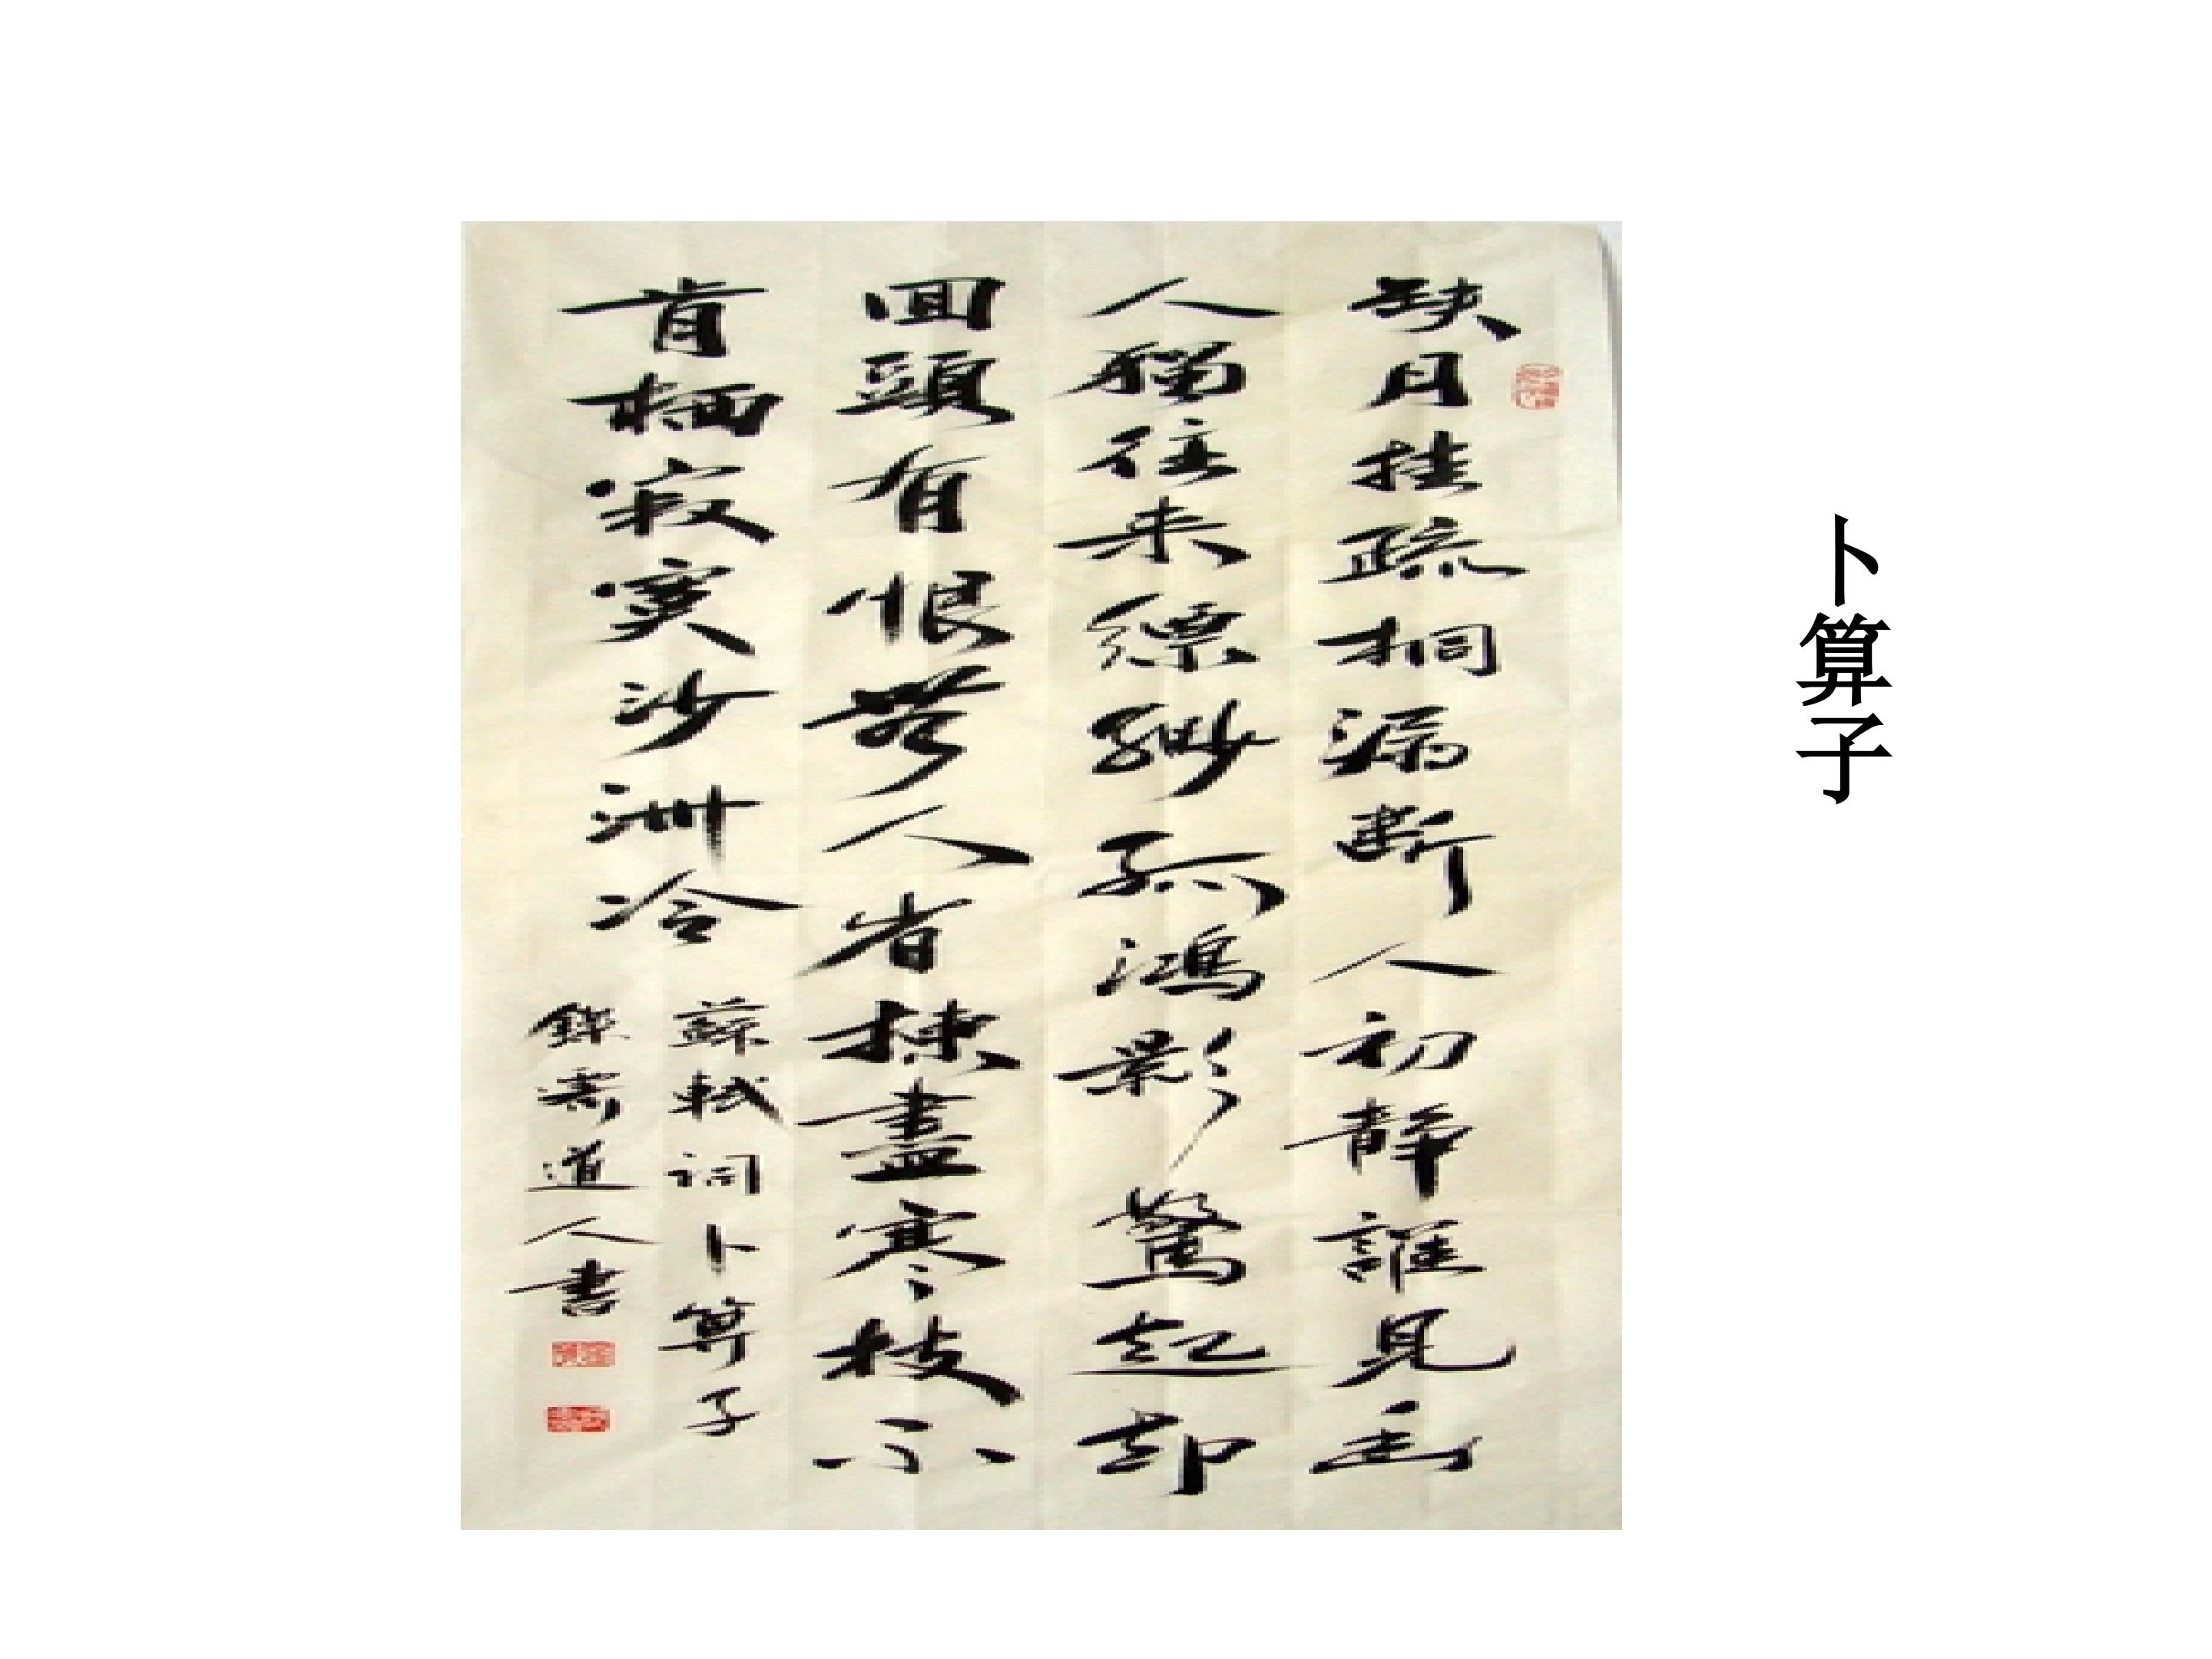 卜算子
缺月挂疏桐漏斷人初靜誰見幽
人獨往来縹緲孤鴻影驚起却
回頭有恨無人省揀盡寒枝不
肯栖寂寞沙洲冷
蘇軾詞卜算子
道人書